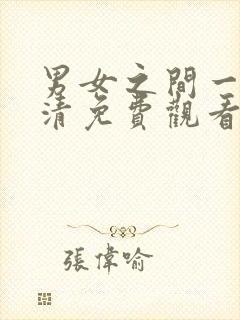 男女之間一
清免費觀看
張偉喻